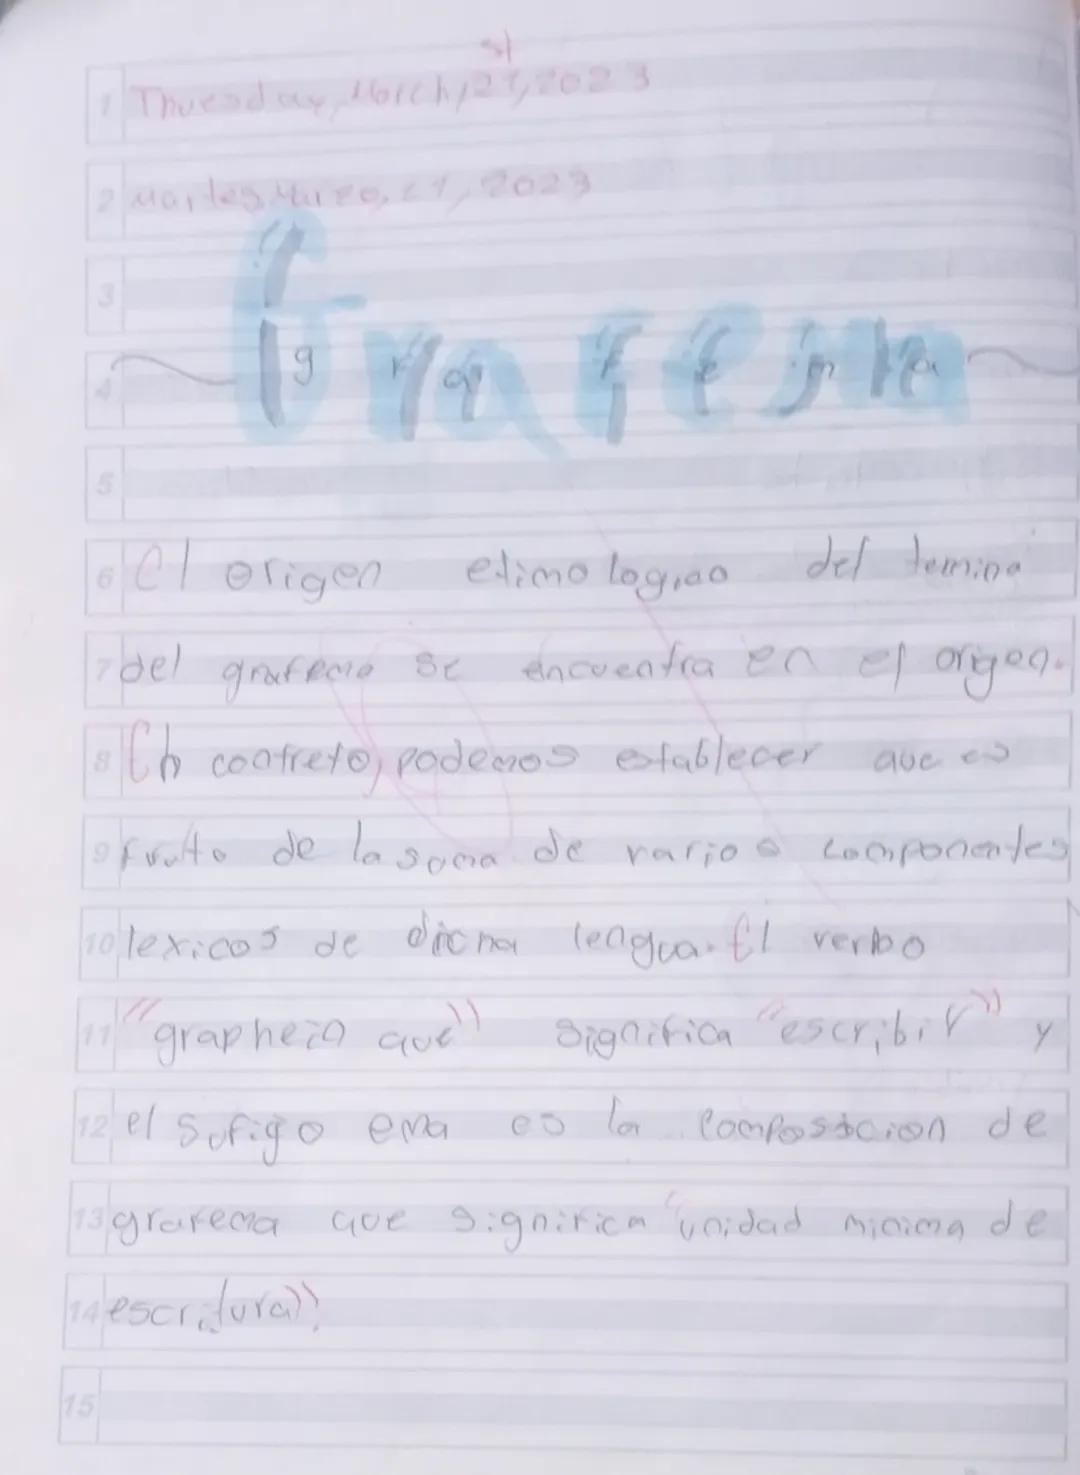 st
1 Thuesday, March, 21, 2023
2 Martes Marzo, 21, 2023
3
Grafema
4 g r a f e m a
5
6 El origen etimologiao del temino
7 del grafema se encuentra en el origen.
8 En contreto, podemos establecer que es
9 fruto de la soma de varios componentes
10 lexicos de dicha lengua. El verbo
11 "graphein que" significa "escribir" y
12 el sufigo ema es la composicion de
13 grafema que significa "unidad minima de
14 escritura"
15